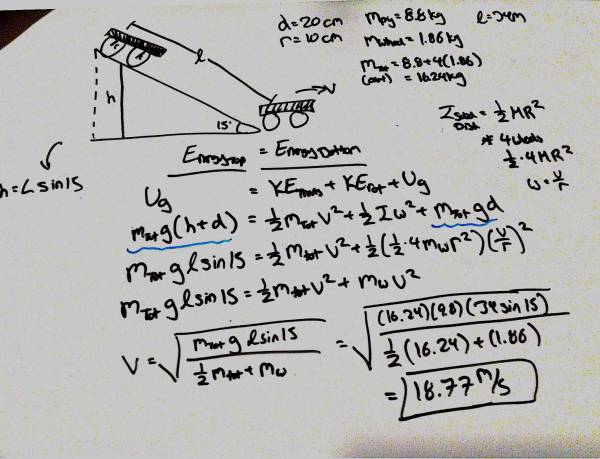 d=20cm
r=10cm
m_Dty=8.8kg
m_wheel=1.86kg
m_Tot=8.8+4(1.86)
(cart) = 16.24kg
l=34m
l
h
15°
v
I_Solid Disk = ½MR²
* 4 wheels
½·4MR²
ω=v/r
h=Lsin15
Energy Top = Energy Bottom
Ug = KE_trans + KE_rot + Ug
m_Tot g(h+d) = ½m_Tot v² + ½Iω² + m_Tot gd
m_Tot g l sin15 = ½m_tot v² + ½(½·4m_w r²)(v/r)²
m_Tot g l sin15 = ½m_tot v² + m_w v²
v = √(m_tot g l sin15 / ½m_tot + m_w) = √((16.24)(9.8)(34sin15) / ½(16.24)+(1.86))
= 18.77 m/s